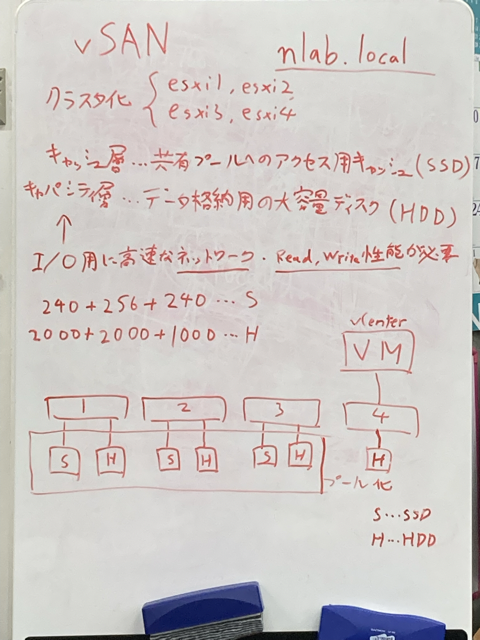 vSAN
nlab.local
クラスタ化 { esxi1, esxi2,
esxi3, esxi4
キャッシュ層…共有プールへのアクセス用キャッシュ(SSD)
キャパシティ層…データ格納用の大容量ディスク(HDD)
↑
I/O用に高速なネットワーク・Read, Write性能が必要
240+256+240…S
2000+2000+1000…H
vCenter
VM
1 2 3 4
S H S H S H H
プール化
S…SSD
H…HDD